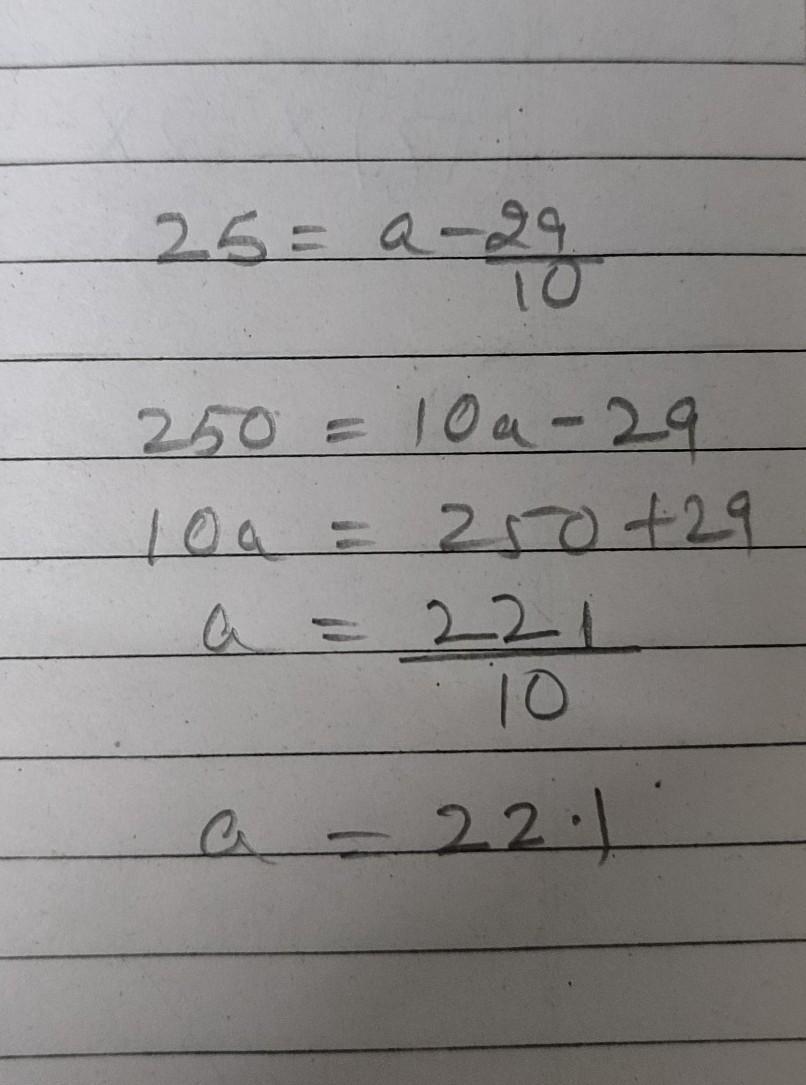 25 = a - 29/10
250 = 10a - 29
10a = 250 + 29
a = 221/10
a = 22.1